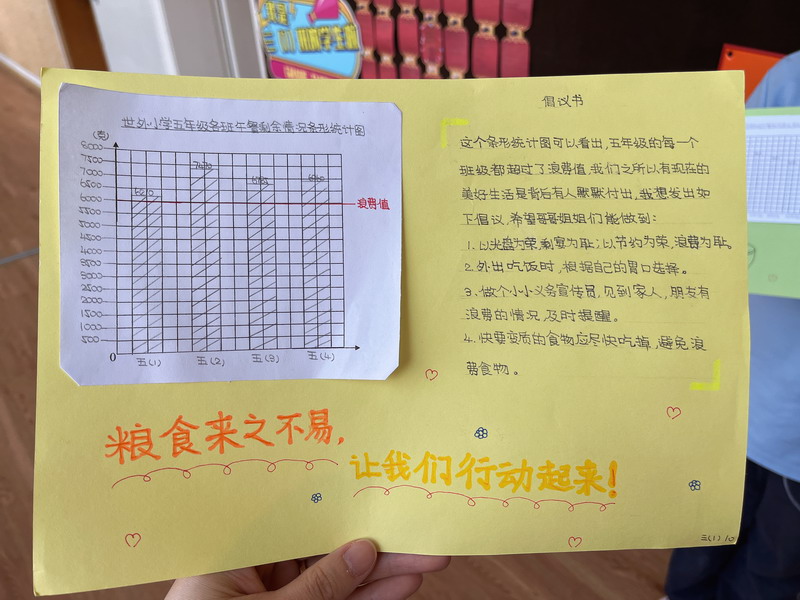 世外小学五年级各班午餐剩余情况条形统计图
(克)
8000
7500
7000
6500
6000
5500
5000
4500
4000
3500
3000
2500
2000
1500
1000
500
0
浪费值
五(1)
五(2)
五(3)
五(4)
倡议书
这个条形统计图可以看出,五年级的每一个
班级都超过了浪费值,我们之所以有现在的
美好生活是背后有人默默付出,我想发出如
下倡议,希望哥哥姐姐们能做到:
1.以光盘为荣,剩宴为耻;以节约为荣,浪费为耻。
2.外出吃饭时,根据自己的胃口选择。
3.做个小小义务宣传员,见到家人,朋友有
浪费的情况,及时提醒。
4.快要变质的食物应尽快吃掉,避免浪
费食物。
粮食来之不易,
让我们行动起来!
三(1) 10